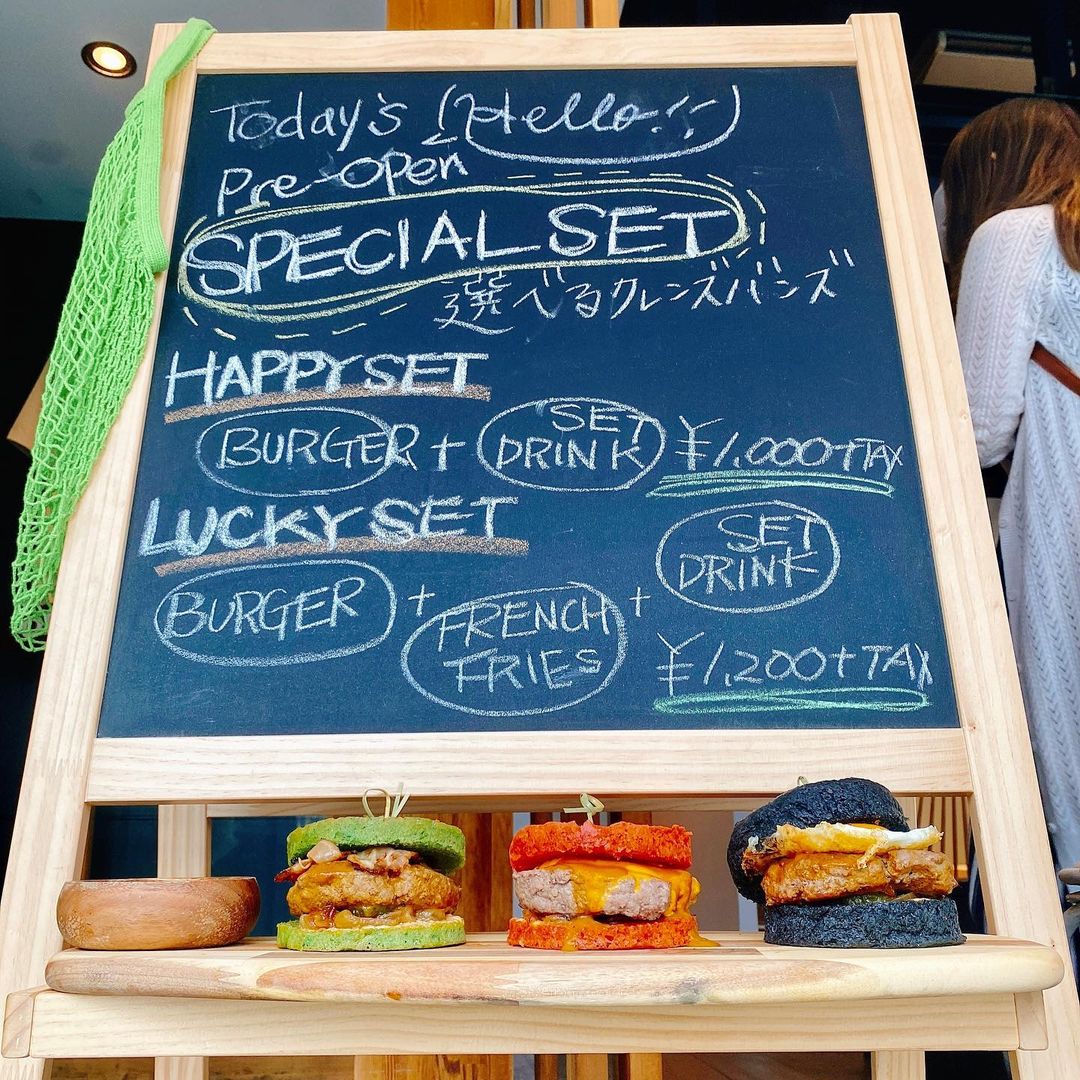 Today's (Hello!!)
Pre-Open
SPECIAL SET
選べるクレンズバンズ
HAPPY SET
BURGER + SET DRINK ¥1,000+TAX
LUCKY SET
BURGER + FRENCH FRIES + SET DRINK
¥1,200+TAX